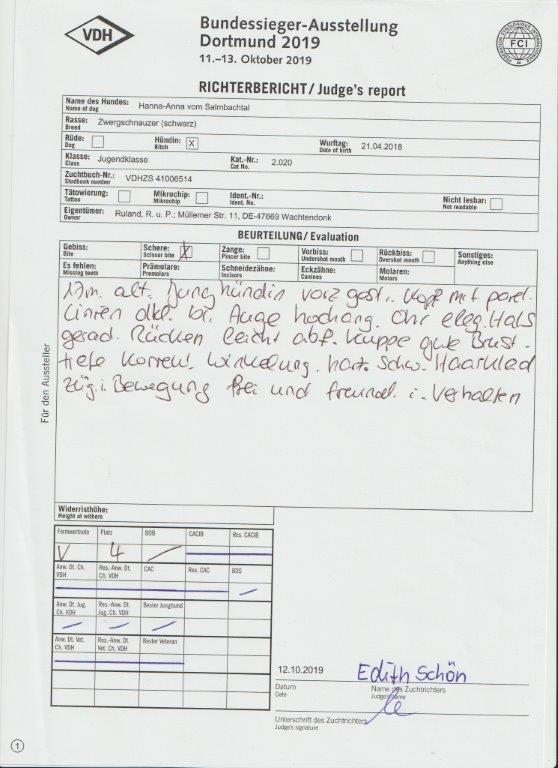 VDH
Bundessieger-Ausstellung
Dortmund 2019
11.–13. Oktober 2019
FCI
RICHTERBERICHT/Judge's report
Name des Hundes: Hanna-Anna vom Salmbachtal
Name of dog
Rasse: Zwergschnauzer (schwarz)
Breed
Rüde: Hündin: X Wurftag: 21.04.2018
Dog Bitch Date of birth
Klasse: Jugendklasse Kat.-Nr.: 2.020
Class Cat No.
Zuchtbuch-Nr.: VDHZS 41006514
Studbook number
Tätowierung: Mikrochip: Ident.-Nr.: Nicht lesbar:
Tattoo Microchip Ident. No. Not readable
Eigentümer: Ruland, R. u. P.; Müllemer Str. 11, DE-47669 Wachtendonk
Owner
BEURTEILUNG/Evaluation
Gebiss: Schere: X Zange: Vorbiss: Rückbiss: Sonstiges:
Bite Scissor bite Pincer bite Undershot mouth Overshot mouth Anything else
Es fehlen: Prämolare: Schneidezähne: Eckzähne: Molaren:
Missing teeth Premolars Incisors Canines Molars
17m. alt. Junghündin vorz gest. Kopf mit parel.
Linien dkl. br. Auge hochang. Ohr eleg. Hals
gerad. Rücken leicht abf. Kuppe gute Brust-
tiefe korrekt. Winkelung. hart. Schw. Haarkleid
Züg. i. Bewegung frei und freundl. i. Verhalten
Für den Aussteller
Widerristhöhe:
Height at withers
Formwertnote Platz BOB CACIB Res. CACIB
V 4
Anw. Dt. Ch. VDH Res.-Anw. Dt. Ch. VDH CAC Res. CAC BOS
Anw. Dt. Jug. Ch. VDH Res.-Anw. Dt. Jug. Ch. VDH Bester Junghund
Anw. Dt. Vet. Ch. VDH Res.-Anw. Dt. Vet. Ch. VDH Bester Veteran
12.10.2019 Edith Schön
Datum Name des Zuchtrichters
Date Judge's name
Unterschrift des Zuchtrichters
Judge's signature
1